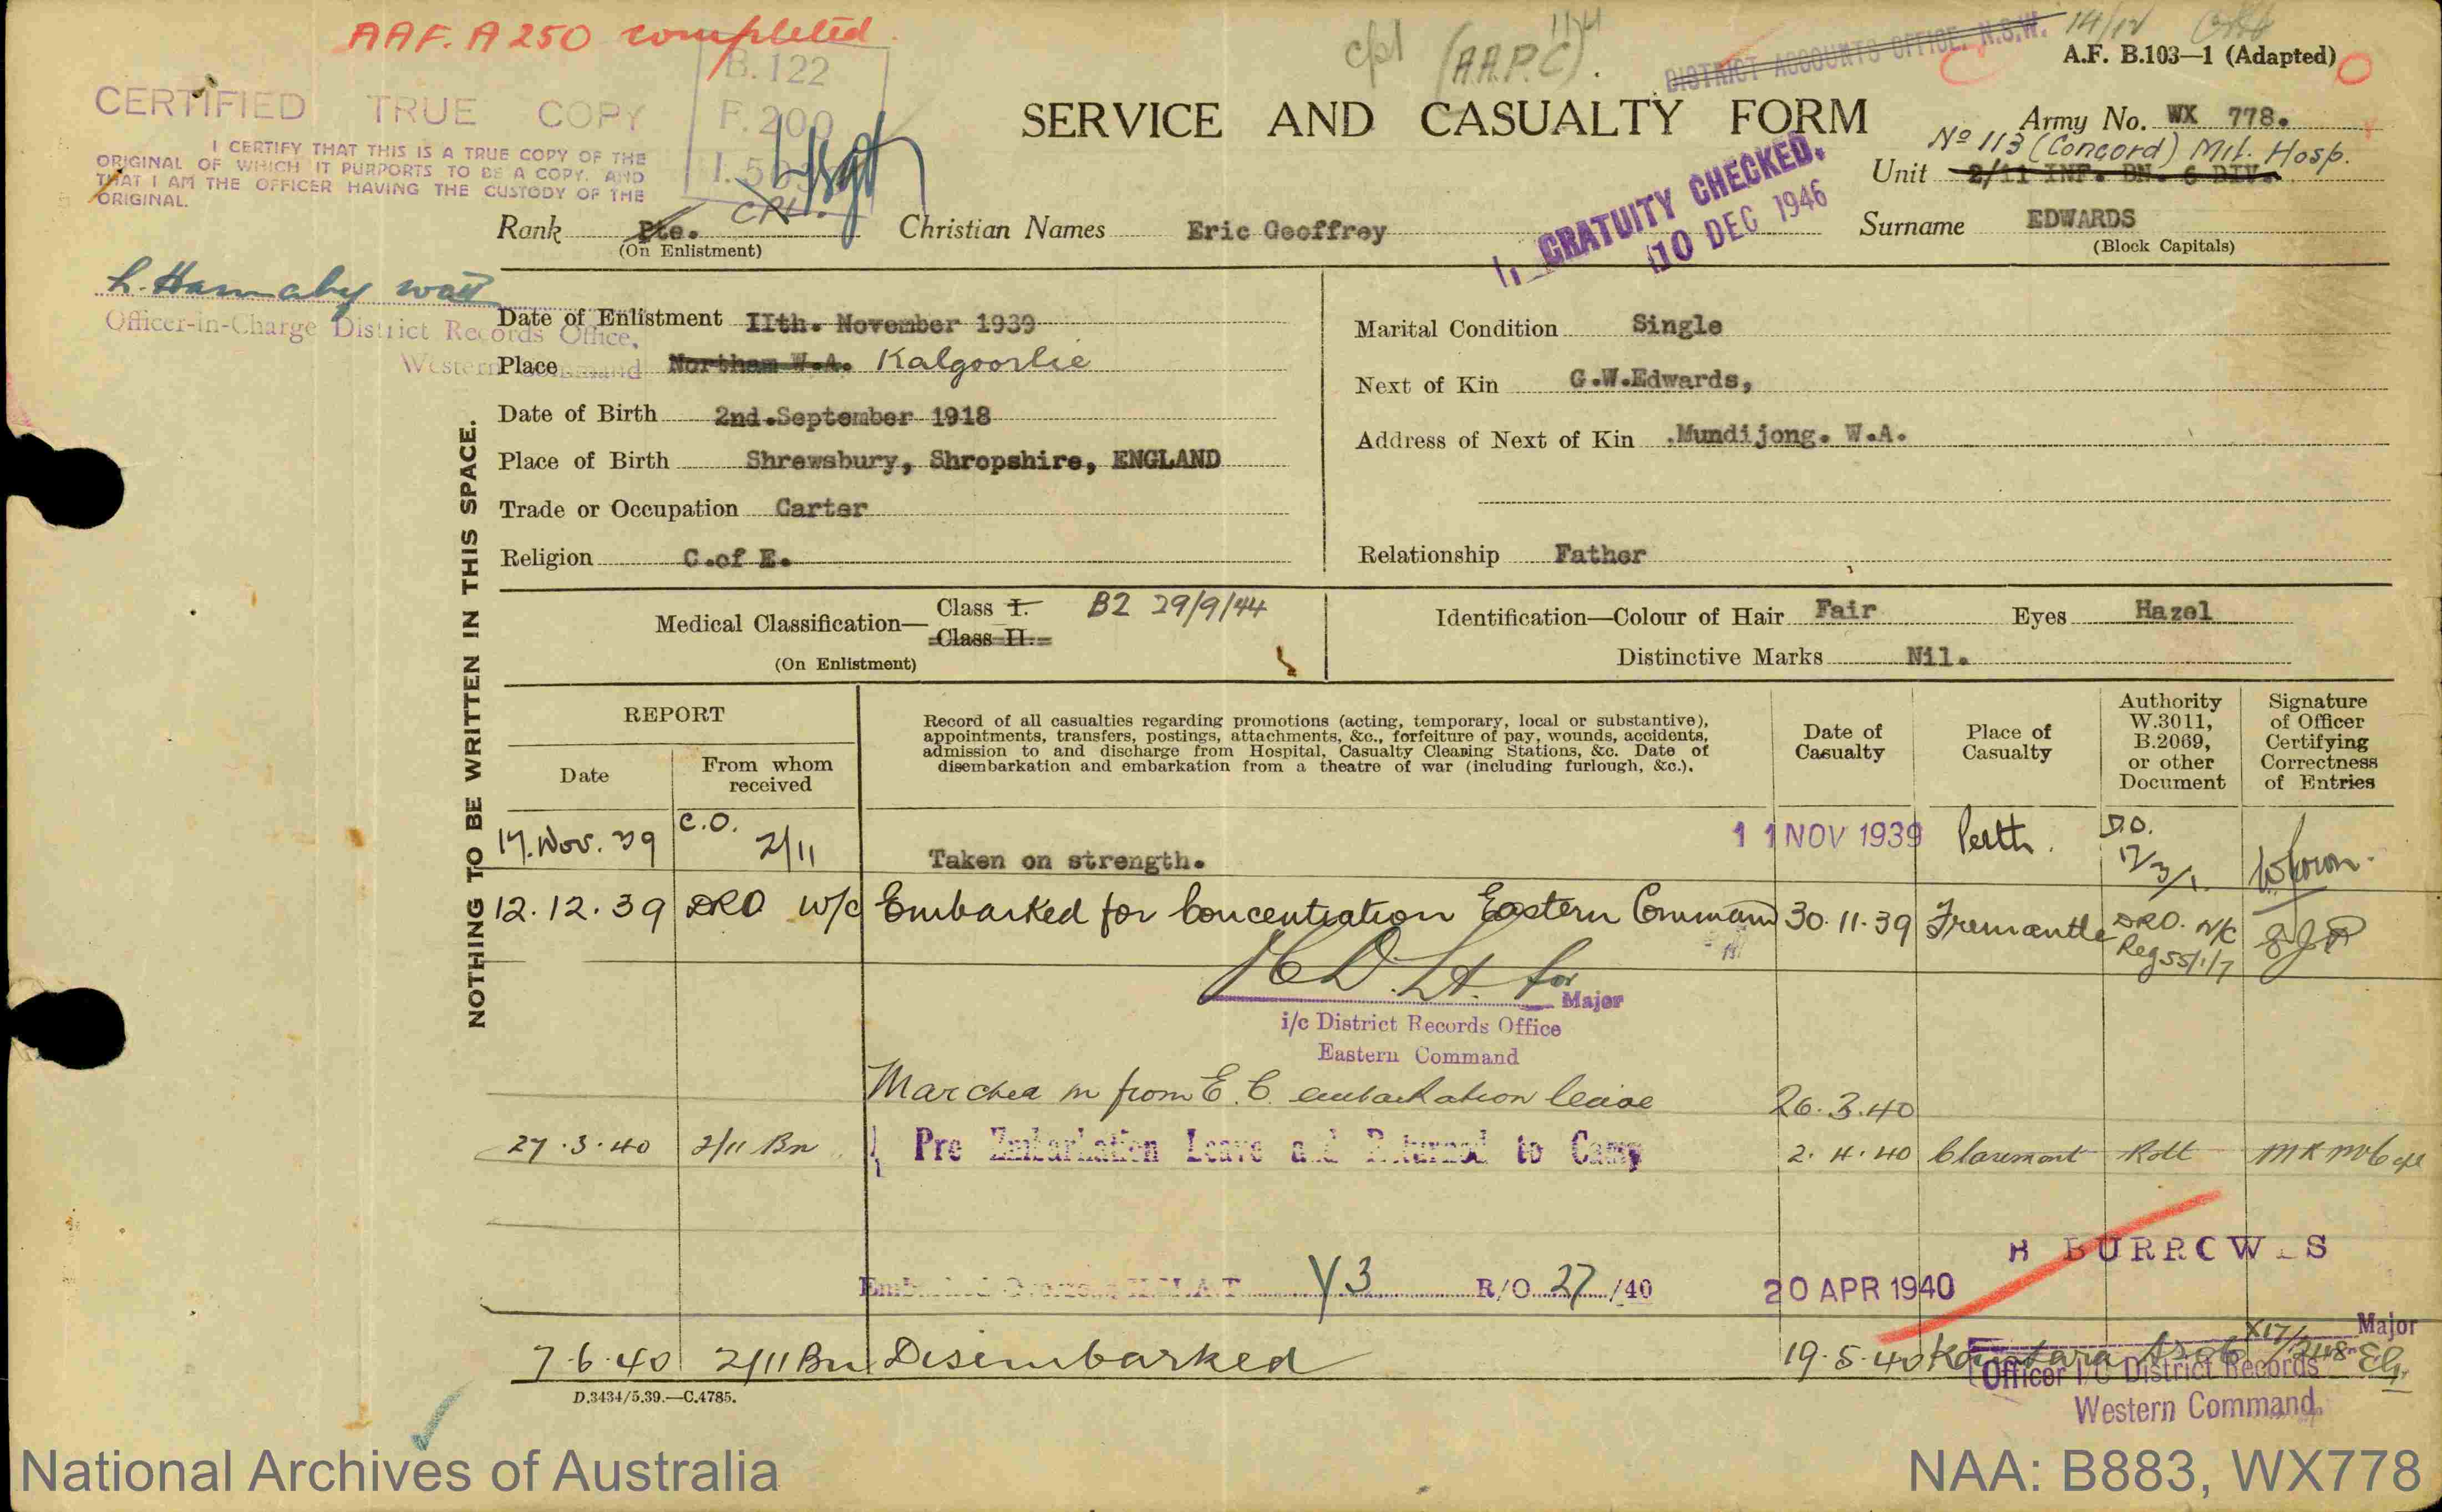 AAF. A250 completed.
cpl (A.A.P.C).
11/4
14/12
DISTRICT ACCOUNTS OFFICE. N.S.W.
A.F. B.103—1 (Adapted)
B.122
F.200
CERTIFIED TRUE COPY
I CERTIFY THAT THIS IS A TRUE COPY OF THE
ORIGINAL OF WHICH IT PURPORTS TO BE A COPY. AND
THAT I AM THE OFFICER HAVING THE CUSTODY OF THE
ORIGINAL.
SERVICE AND CASUALTY FORM
Army No. WX 778.
No 113 (Concord) Mil. Hosp.
Unit 2/11 INF. BN. 6 DIV.
GRATUITY CHECKED.
10 DEC 1946
Rank Pte. CPL.
(On Enlistment)
Christian Names Eric Geoffrey
Surname EDWARDS
(Block Capitals)
Officer-in-Charge District Records Office,
Western Command
Date of Enlistment IIth. November 1939
Marital Condition Single
Place Northam W.A. Kalgoorlie
Next of Kin G.W.Edwards,
Date of Birth 2nd.September 1918
Address of Next of Kin .Mundijong. W.A.
Place of Birth Shrewsbury, Shropshire, ENGLAND
Trade or Occupation Carter
Religion C.of E.
Relationship Father
NOTHING TO BE WRITTEN IN THIS SPACE.
Medical Classification— Class I. B2 29/9/44
Class II.
(On Enlistment)
Identification—Colour of Hair Fair Eyes Hazel
Distinctive Marks Nil.
REPORT
Date
From whom received
Record of all casualties regarding promotions (acting, temporary, local or substantive),
appointments, transfers, postings, attachments, &c., forfeiture of pay, wounds, accidents,
admission to and discharge from Hospital, Casualty Cleaning Stations, &c. Date of
disembarkation and embarkation from a theatre of war (including furlough, &c.).
Date of Casualty
Place of Casualty
Authority W.3011, B.2069, or other Document
Signature of Officer Certifying Correctness of Entries
17.Nov. 39 C.O. 2/11 Taken on strength. 11 NOV 1939 Perth. D.O. 12/3/1.
12.12.39 DRO W/C Embarked for Concentration Eastern Command 30.11.39 Fremantle DRO. W/C Reg 55/1/7
Lt. for Major
i/c District Records Office
Eastern Command
Marched in from E.C. embarkation leave 26.3.40
27.3.40 2/11 Bn Pre Embarkation Leave and Returned to Camp 2.4.40 Claremont Roll
H BURROWS
Embarked Overseas H.M.A.T. Y3 R/O 27/40 20 APR 1940
Major
7.6.40 2/11 Bn Disembarked 19.5.40 Kantara
Officer I/C District Records
Western Command.
D.3434/5.39.—C.4785.
National Archives of Australia
NAA: B883, WX778